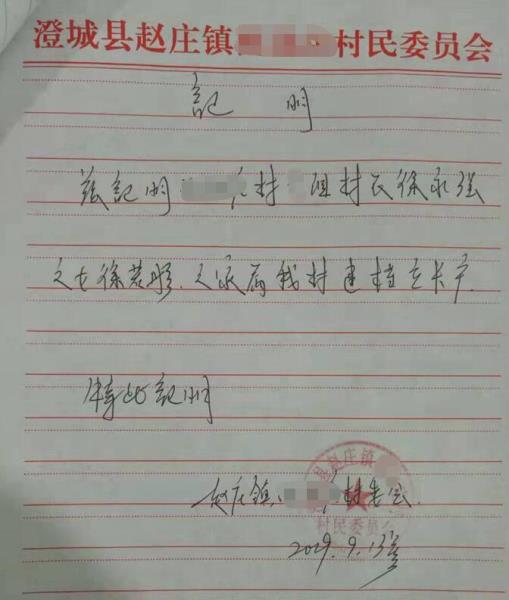 澄城县赵庄镇 村民委员会
证明
兹证明 村 组村民徐永强
之女徐 之家属我村建档立卡户
特此证明
赵庄镇 村委会
2019.9.13号
县赵庄镇
村民委员会